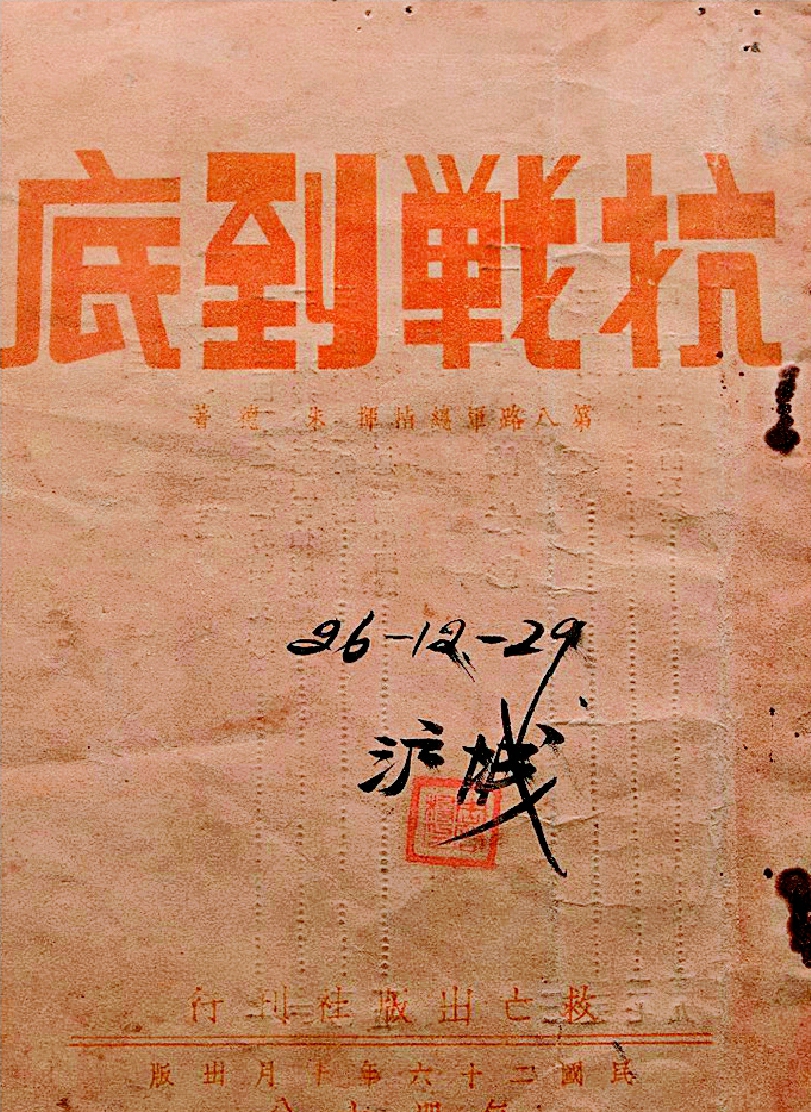 抗戰到底
第八路軍總指揮 朱 德 著
26-12-29
沪城
救亡出版社刊行
民國二十六年十月出版